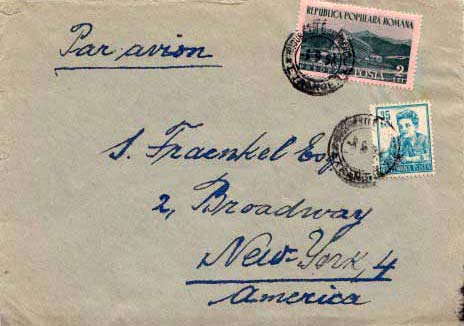 REPUBLICA POPULARA ROMANA
POSTA 2
LEI
Par avion
S. Fraenkel Esq.
2, Broadway
New-York, 4
America